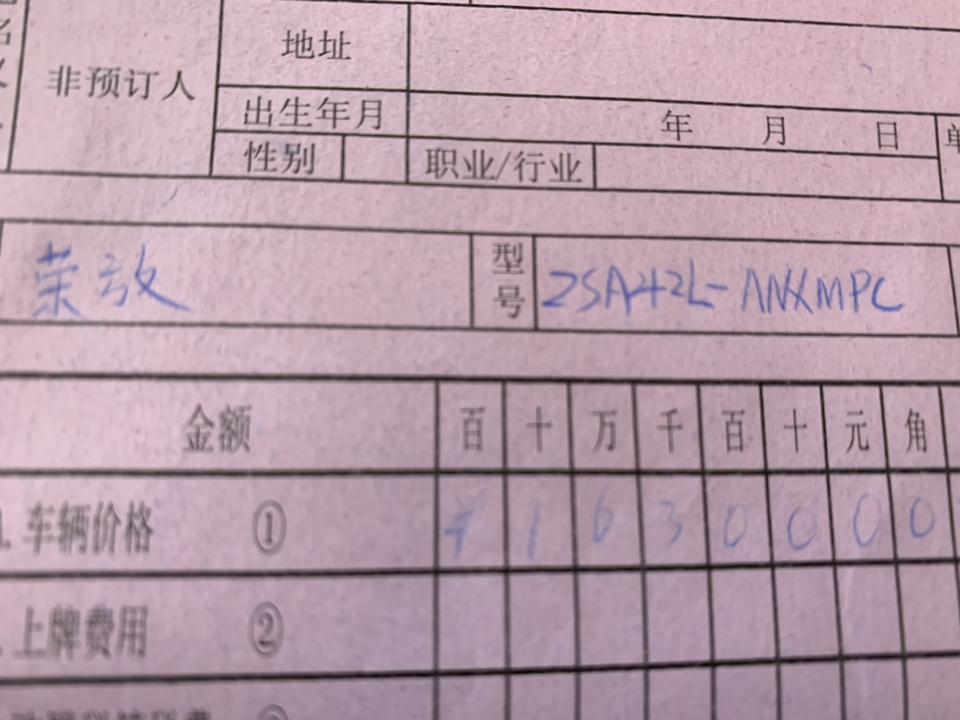 非预订人
地址
出生年月 年 月 日
性别 职业/行业
荣放 型号 ZSA42L-ANXMPC
金额 百 十 万 千 百 十 元 角
车辆价格 ① ¥ 1 6 3 0 0 0 0
上牌费用 ②